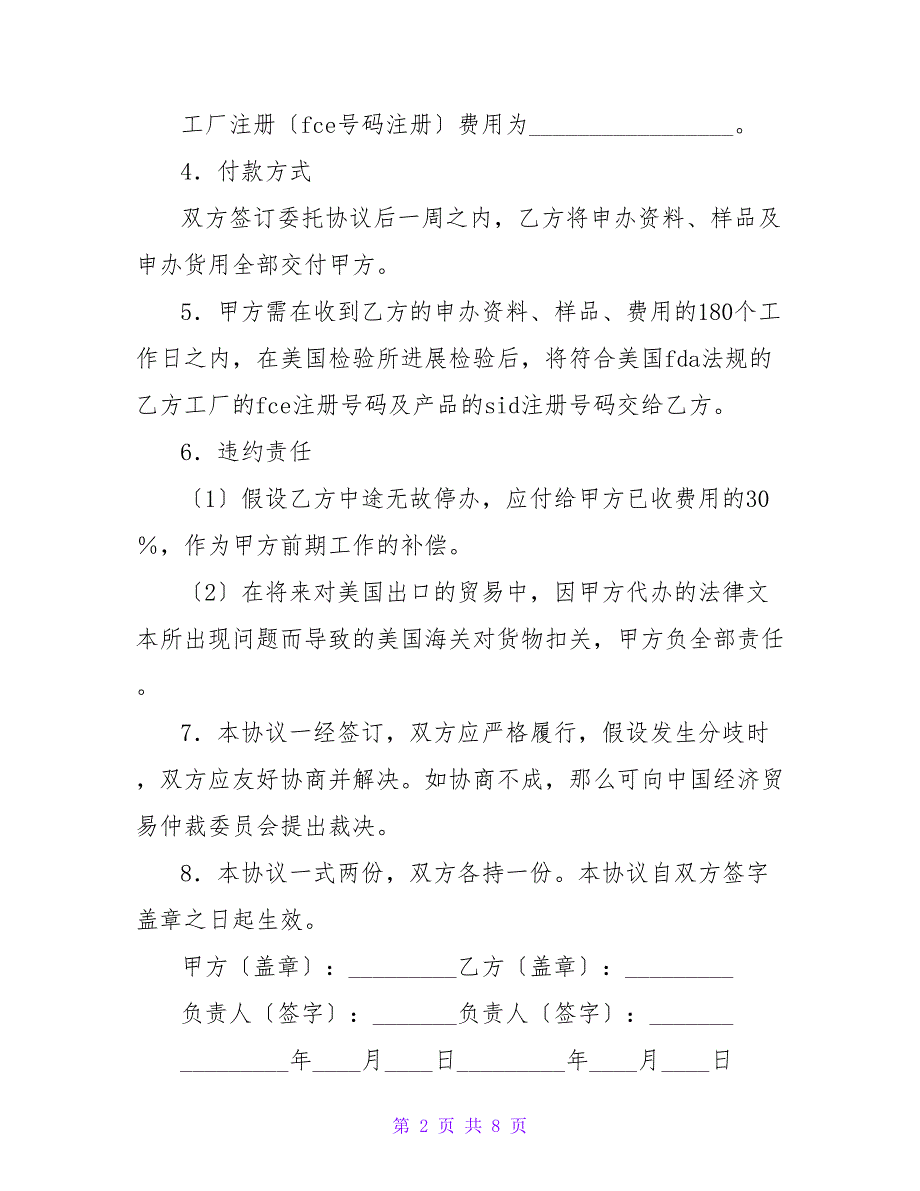 工厂注册〔fce号码注册〕费用为_________________。
4．付款方式
双方签订委托协议后一周之内，乙方将申办资料、样品及
申办货用全部交付甲方。
5．甲方需在收到乙方的申办资料、样品、费用的180个工
作日之内，在美国检验所进展检验后，将符合美国fda法规的
乙方工厂的fce注册号码及产品的sid注册号码交给乙方。
6．违约责任
〔1〕假设乙方中途无故停办，应付给甲方已收费用的30
％，作为甲方前期工作的补偿。
〔2〕在将来对美国出口的贸易中，因甲方代办的法律文
本所出现问题而导致的美国海关对货物扣关，甲方负全部责任
。
7．本协议一经签订，双方应严格履行，假设发生分歧时
，双方应友好协商并解决。如协商不成，那么可向中国经济贸
易仲裁委员会提出裁决。
8．本协议一式两份，双方各持一份。本协议自双方签字
盖章之日起生效。
甲方〔盖章〕：_________乙方〔盖章〕：_________
负责人〔签字〕：_______负责人〔签字〕：_______
_________年____月____日_________年____月____日
第 2 页 共 8 页